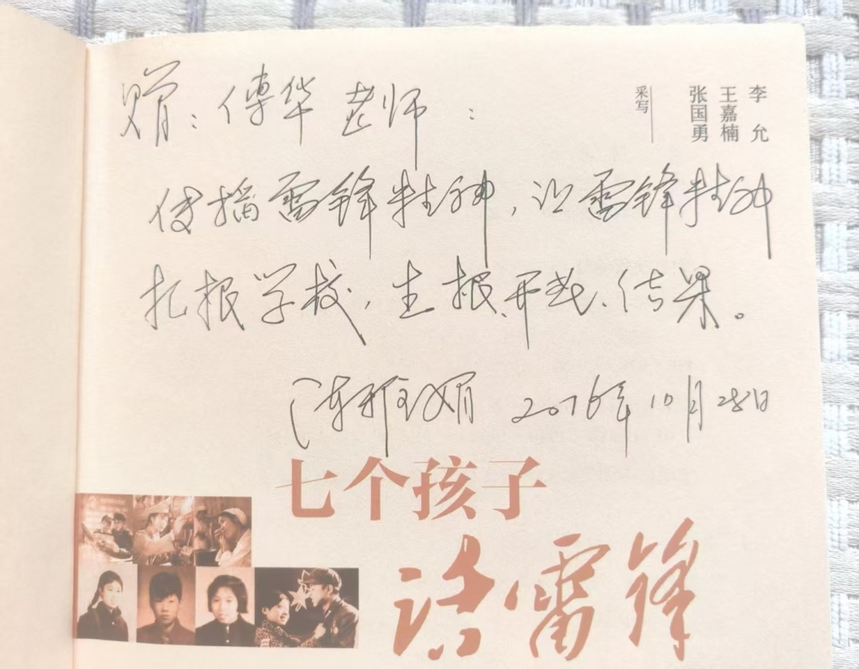 赠：傅华老师：
传播雷锋精神，让雷锋精神
扎根学校，生根、开花、结果。
陈雅娟 2016年10月28日
李允
王嘉楠
张国勇
采写
七个孩子
话雷锋